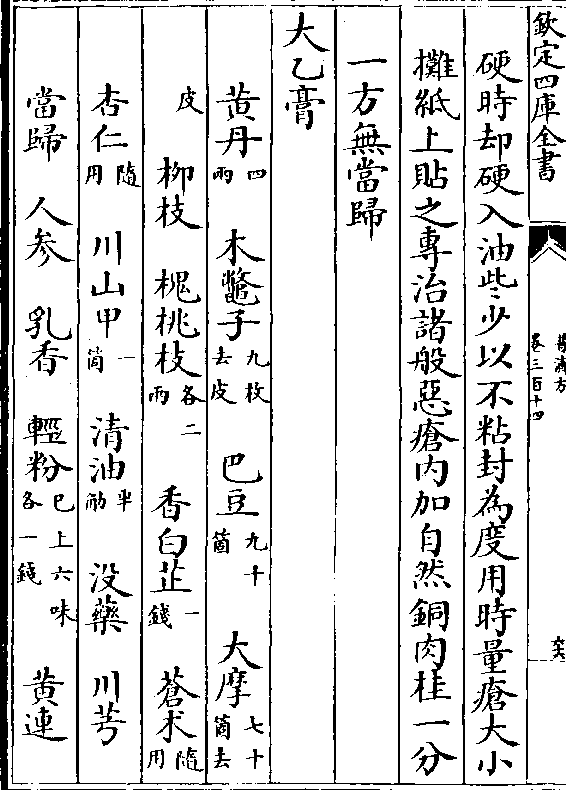 欽定四庫全書
普濟方
卷三百十四
硬時却硬入油些〻少以不粘封為度用時量瘡大小
攤紙上貼之專治諸般惡瘡内加自然銅肉桂一分
一方無當歸
大乙膏
黄丹四兩 木鼈子九枚去皮 巴豆九十箇 大摩七十箇去
皮 柳枝 槐桃枝各二兩 香白芷一錢 蒼术隨用
杏仁隨用 川山甲一箇 清油半觔 没藥 川芎
當歸 人参 乳香 輕粉巳上六味各一錢 黄連